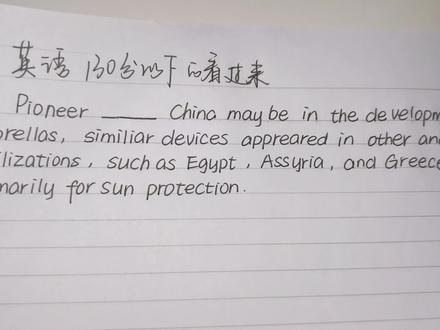 英语 130分以下的看过来
Pioneer ____ China may be in the developm
rellas, similiar devices appreared in other an
lizations, such as Egypt, Assyria, and Greece
marily for sun protection.